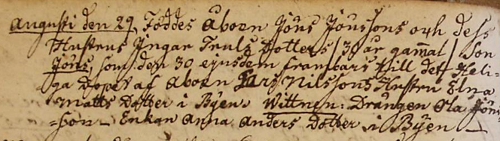 Augusti den 29 Föddes Åboen Jöns Jönssons och dess
Hustrus Ingar Truls Dotters /30 år gamal/ Son
Jöns, som den 30 ejusdem frambars till det Heli-
ga Dopet af Åboen Lars Nilssons Hustru Elna
Matts Dotter i Byen. Vittnen: Drängen Ola Jöns
son. Enkan Anna Anders Dotter i Byen